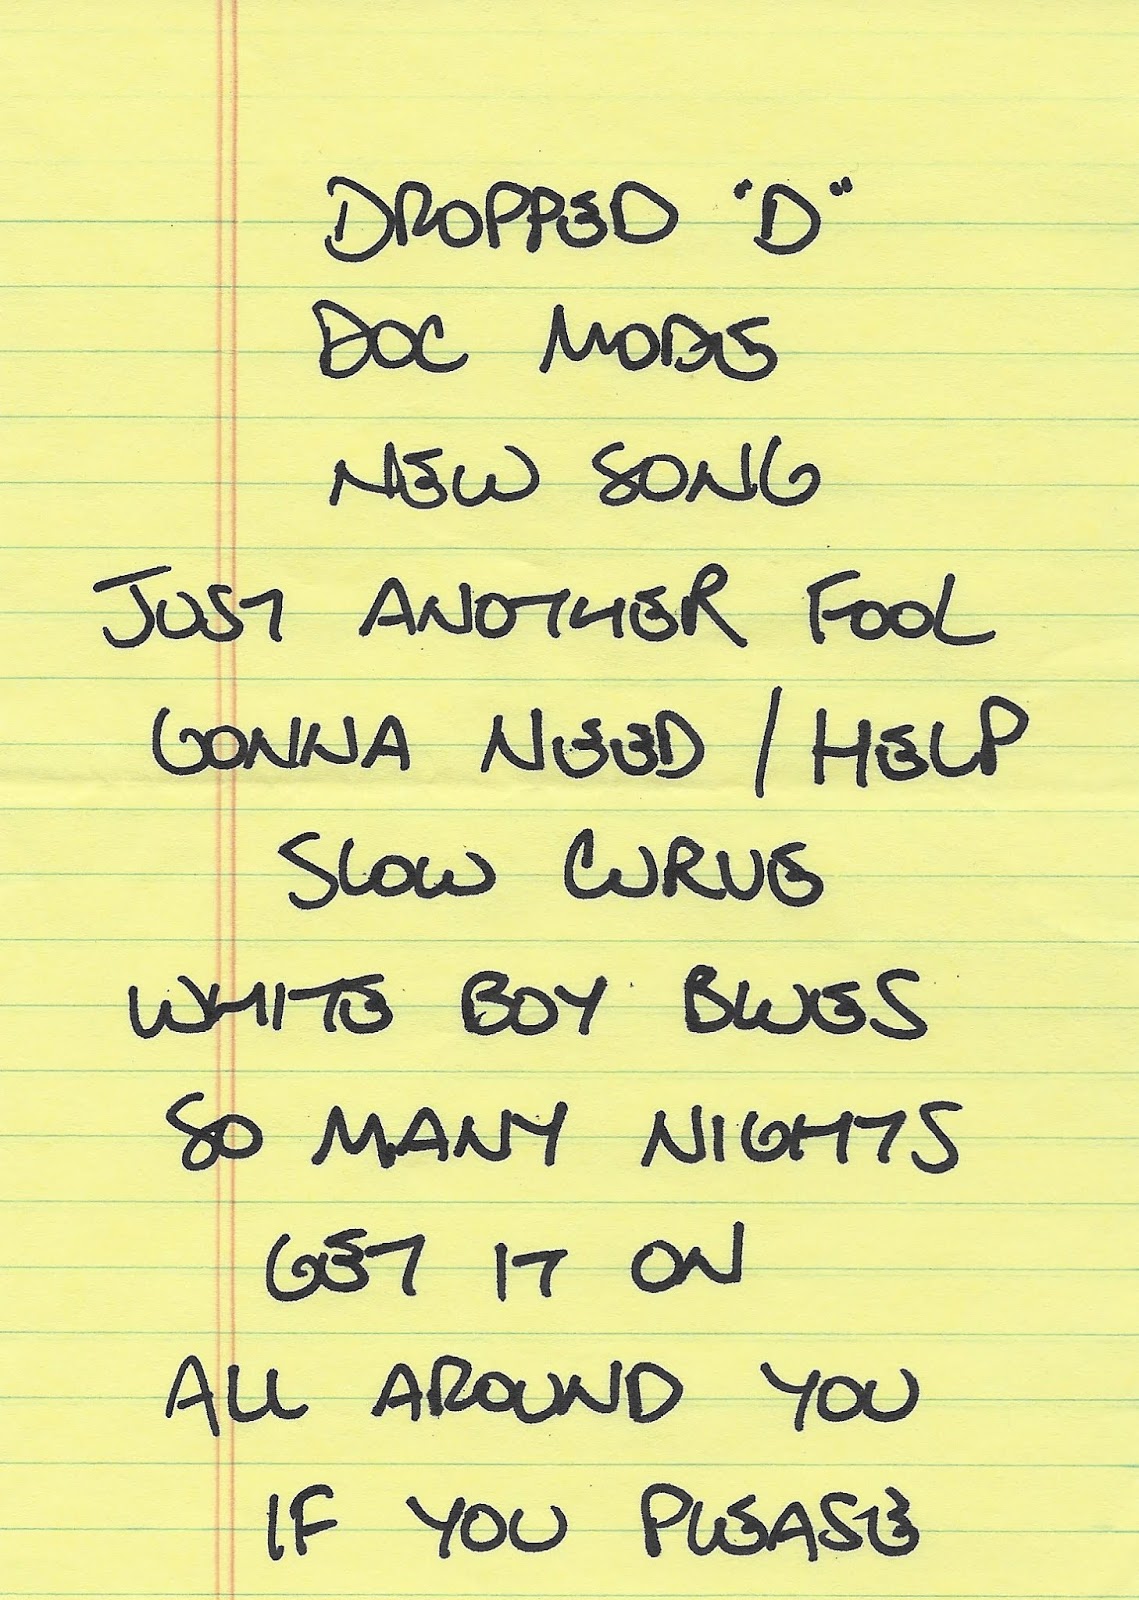 DROPPED "D"
DOC MODE
NEW SONG
JUST ANOTHER FOOL
GONNA NEED / HELP
SLOW CURVE
WHITE BOY BLUES
SO MANY NIGHTS
GET IT ON
ALL AROUND YOU
IF YOU PLEASE